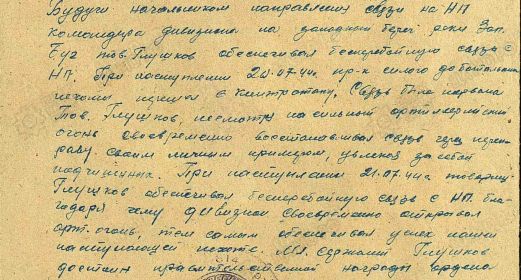 Будучи начальником направления связи на НП
командира дивизиона на западном берегу реки Зап.
Буг тов. Глушков обеспечивал бесперебойную связь с
НП. При наступлении 20.07.44г пр-к силою до батальона
пехоты перешел в контратаку. Связь была порвана
Тов. Глушков, несмотря на сильный артиллерийский
огонь своевременно восстанавливал связь через
праву. своим личным примером, увлекая за собой
подчиненных. При наступлении 21.07.44г товарищ
Глушков обеспечивал бесперебойную связь с НП. бла-
годаря чему дивизион своевременно открывал
арт. огонь, тем самым обеспечивал успех нашей
наступающей пехоте. Мл. сержант Глушков
достоин правительственной награды ордена